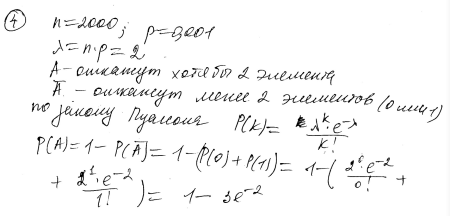 ④ n=2000; p=0,001
λ=n·p=2
A – откажут хотя бы 2 элемента
A̅ – откажут менее 2 элементов (0 или 1)
по закону Пуассона P(k)= λᵏ·e^-λ / k!
P(A)=1-P(A̅)=1-(P(0)+P(1))=1-(2⁰·e⁻² / 0! +
+ 2¹·e⁻² / 1!)= 1-3e⁻²